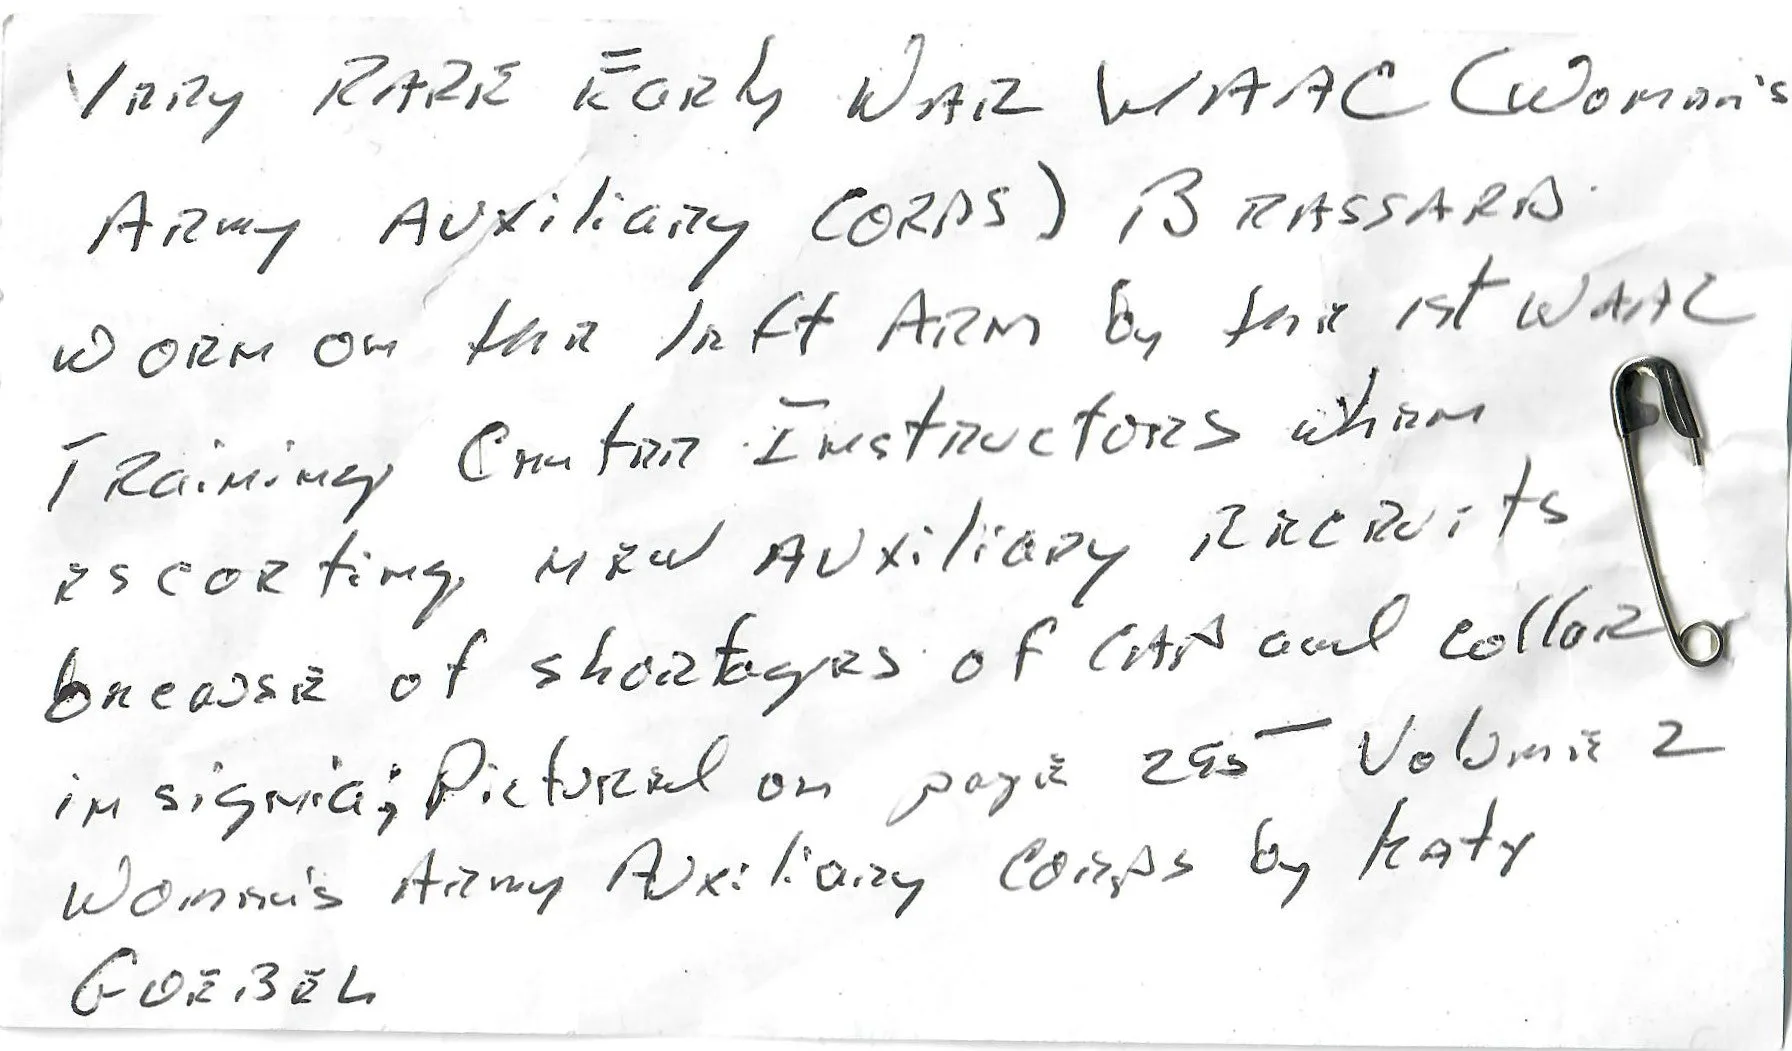 Very RARE Early WAR WAAC (Women's
Army Auxiliary CORPS) BRASSARD
WORN on the left ARM by the 1st WAAC
Training Center Instructors when
escorting new Auxiliary Recruits
because of shortages of CAP and collar
insignia; Pictured on page 295 Volume 2
Women's Army Auxiliary Corps by Katy
GOEBEL